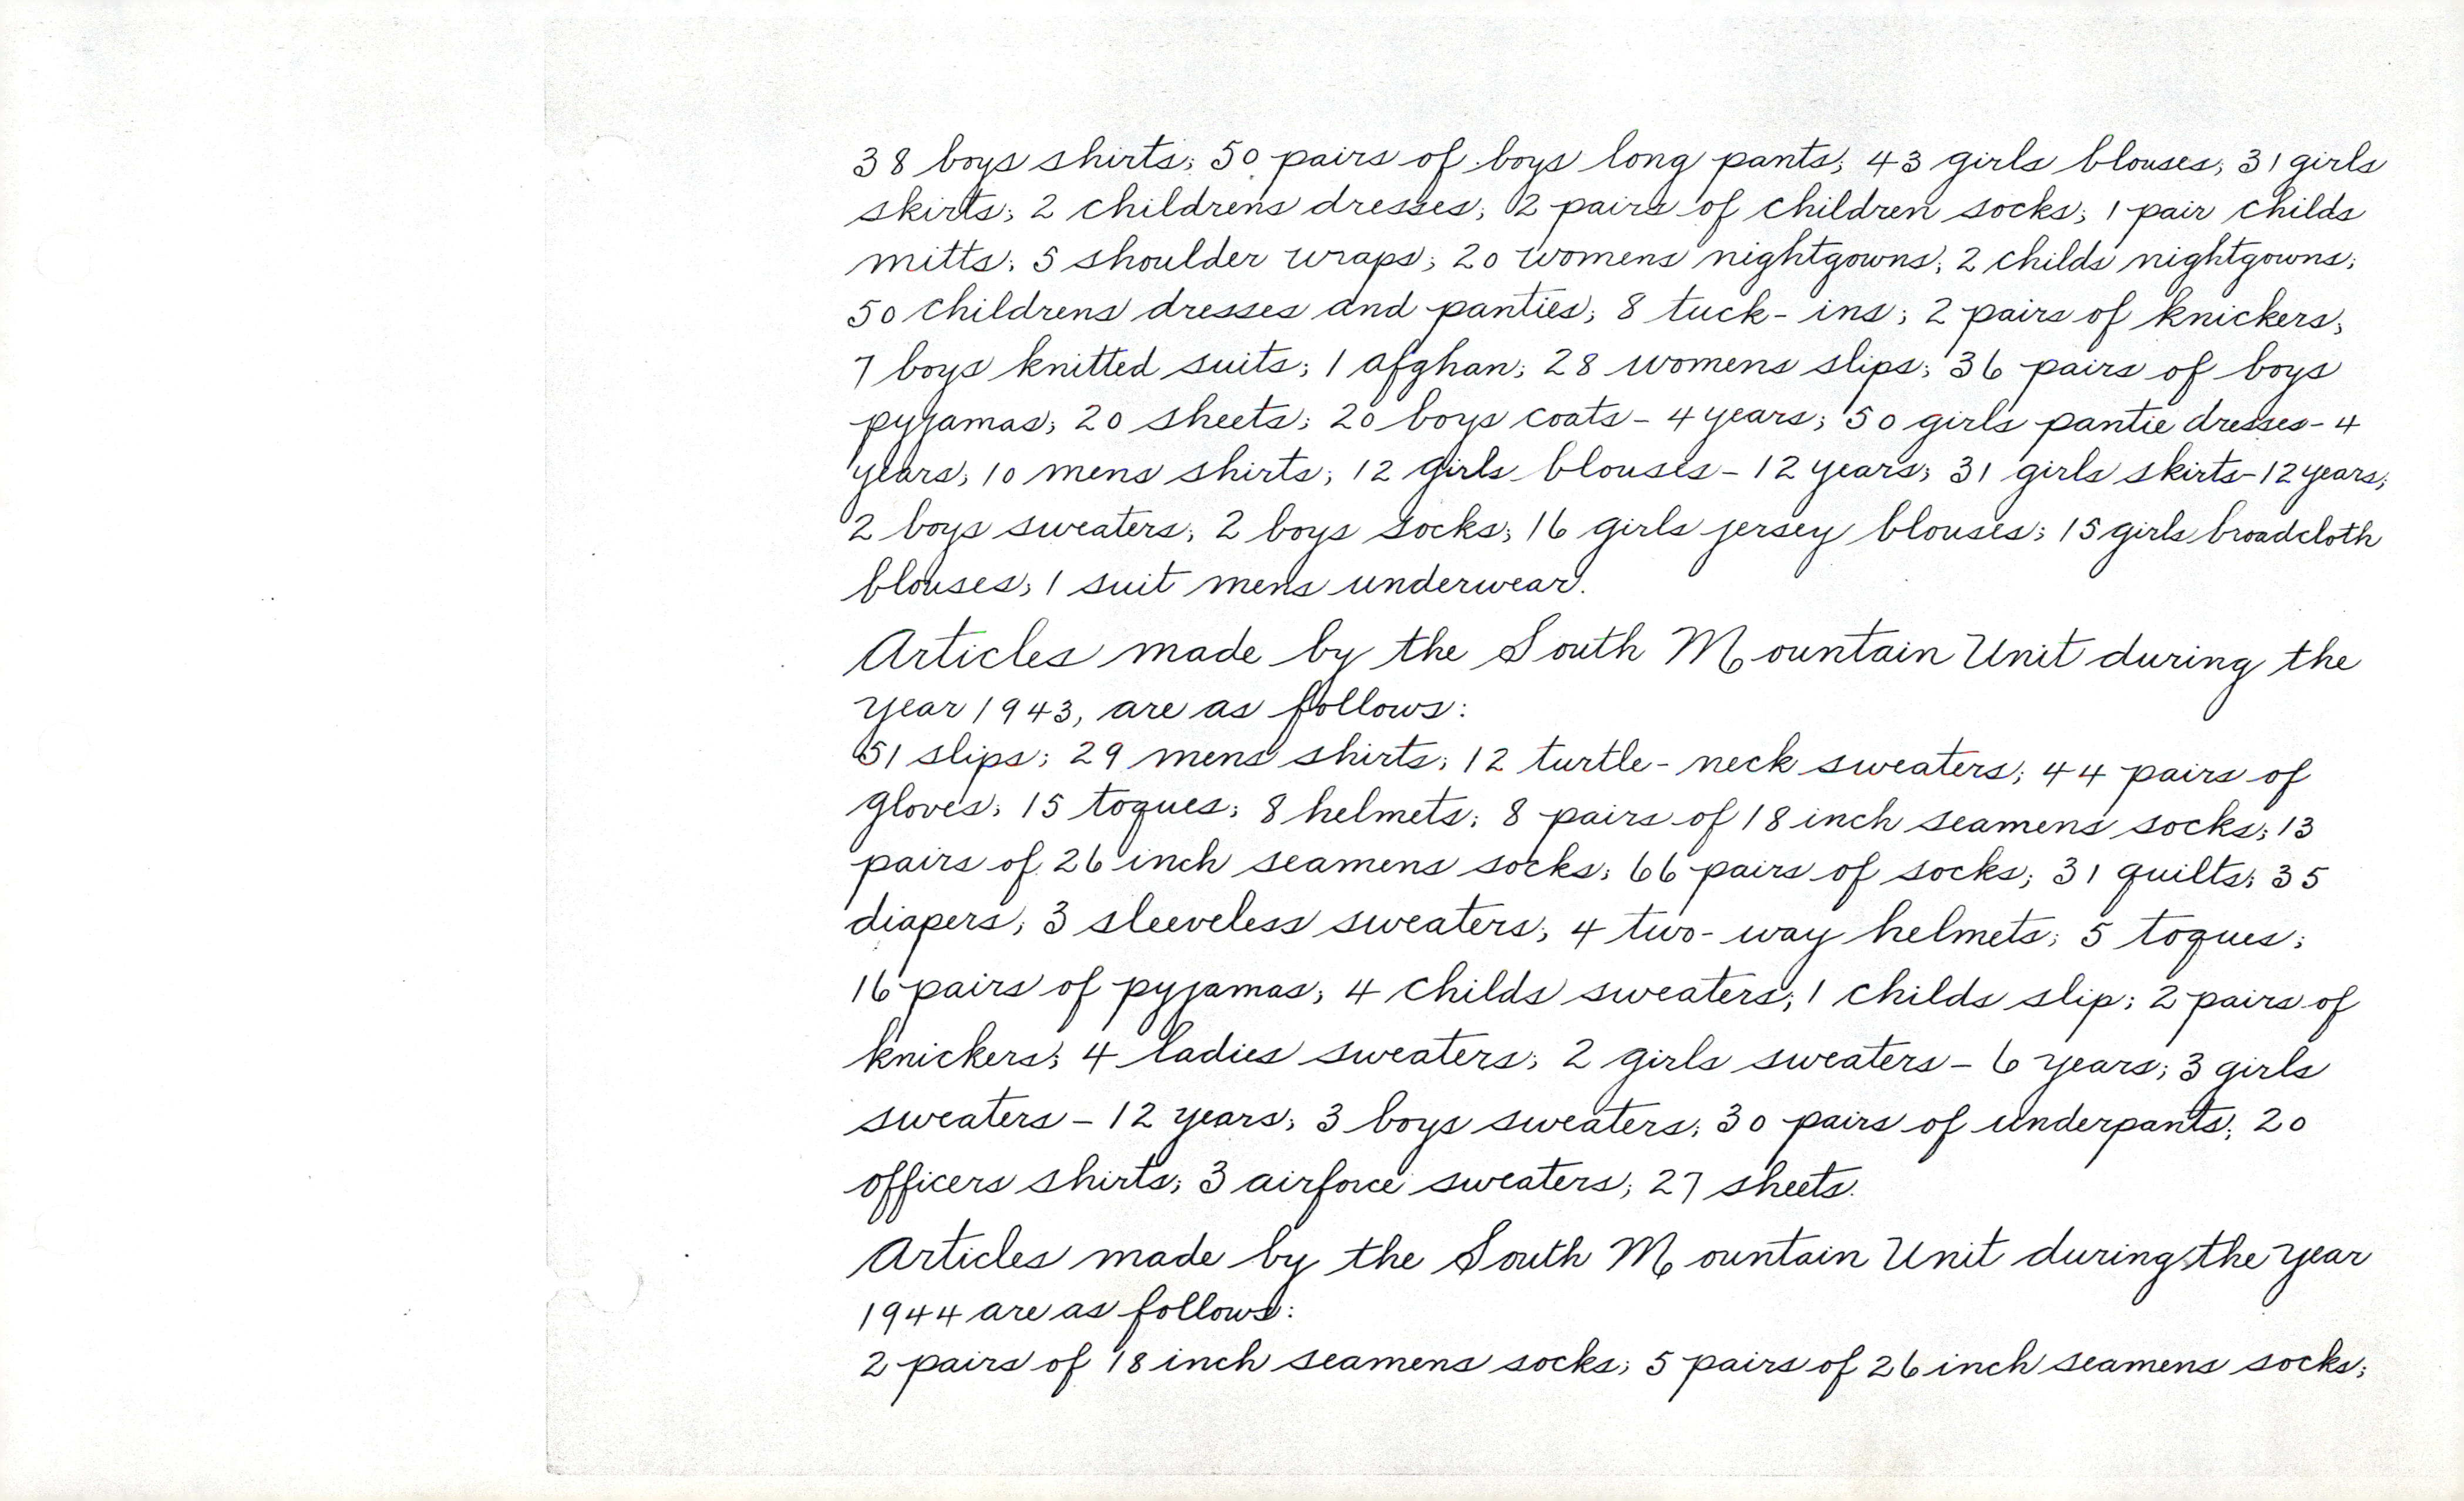 38 boys shirts; 50 pairs of boys long pants; 43 girls blouses; 31 girls
skirts; 2 childrens dresses; 2 pairs of children socks; 1 pair childs
mitts; 5 shoulder wraps; 20 womens nightgowns; 2 childs nightgowns;
50 childrens dresses and panties; 8 tuck-ins; 2 pairs of knickers;
7 boys knitted suits; 1 afghan; 28 womens slips; 36 pairs of boys
pyjamas; 20 sheets; 20 boys coats - 4 years; 50 girls pantie dresses - 4
years; 10 mens shirts; 12 girls blouses - 12 years; 31 girls skirts - 12 years;
2 boys sweaters; 2 boys socks; 16 girls jersey blouses; 15 girls broadcloth
blouses; 1 suit mens underwear.
Articles made by the South Mountain Unit during the
year 1943, are as follows:
51 slips; 29 mens shirts; 12 turtle-neck sweaters; 44 pairs of
gloves; 15 toques; 8 helmets; 8 pairs of 18 inch seamens socks; 13
pairs of 26 inch seamens socks; 66 pairs of socks; 31 quilts; 35
diapers; 3 sleeveless sweaters; 4 two-way helmets; 5 toques;
16 pairs of pyjamas; 4 childs sweaters; 1 childs slip; 2 pairs of
knickers; 4 ladies sweaters; 2 girls sweaters - 6 years; 3 girls
sweaters - 12 years; 3 boys sweaters; 30 pairs of underpants; 20
officers shirts; 3 airforce sweaters; 27 sheets.
Articles made by the South Mountain Unit during the year
1944 are as follows:
2 pairs of 18 inch seamens socks; 5 pairs of 26 inch seamens socks;